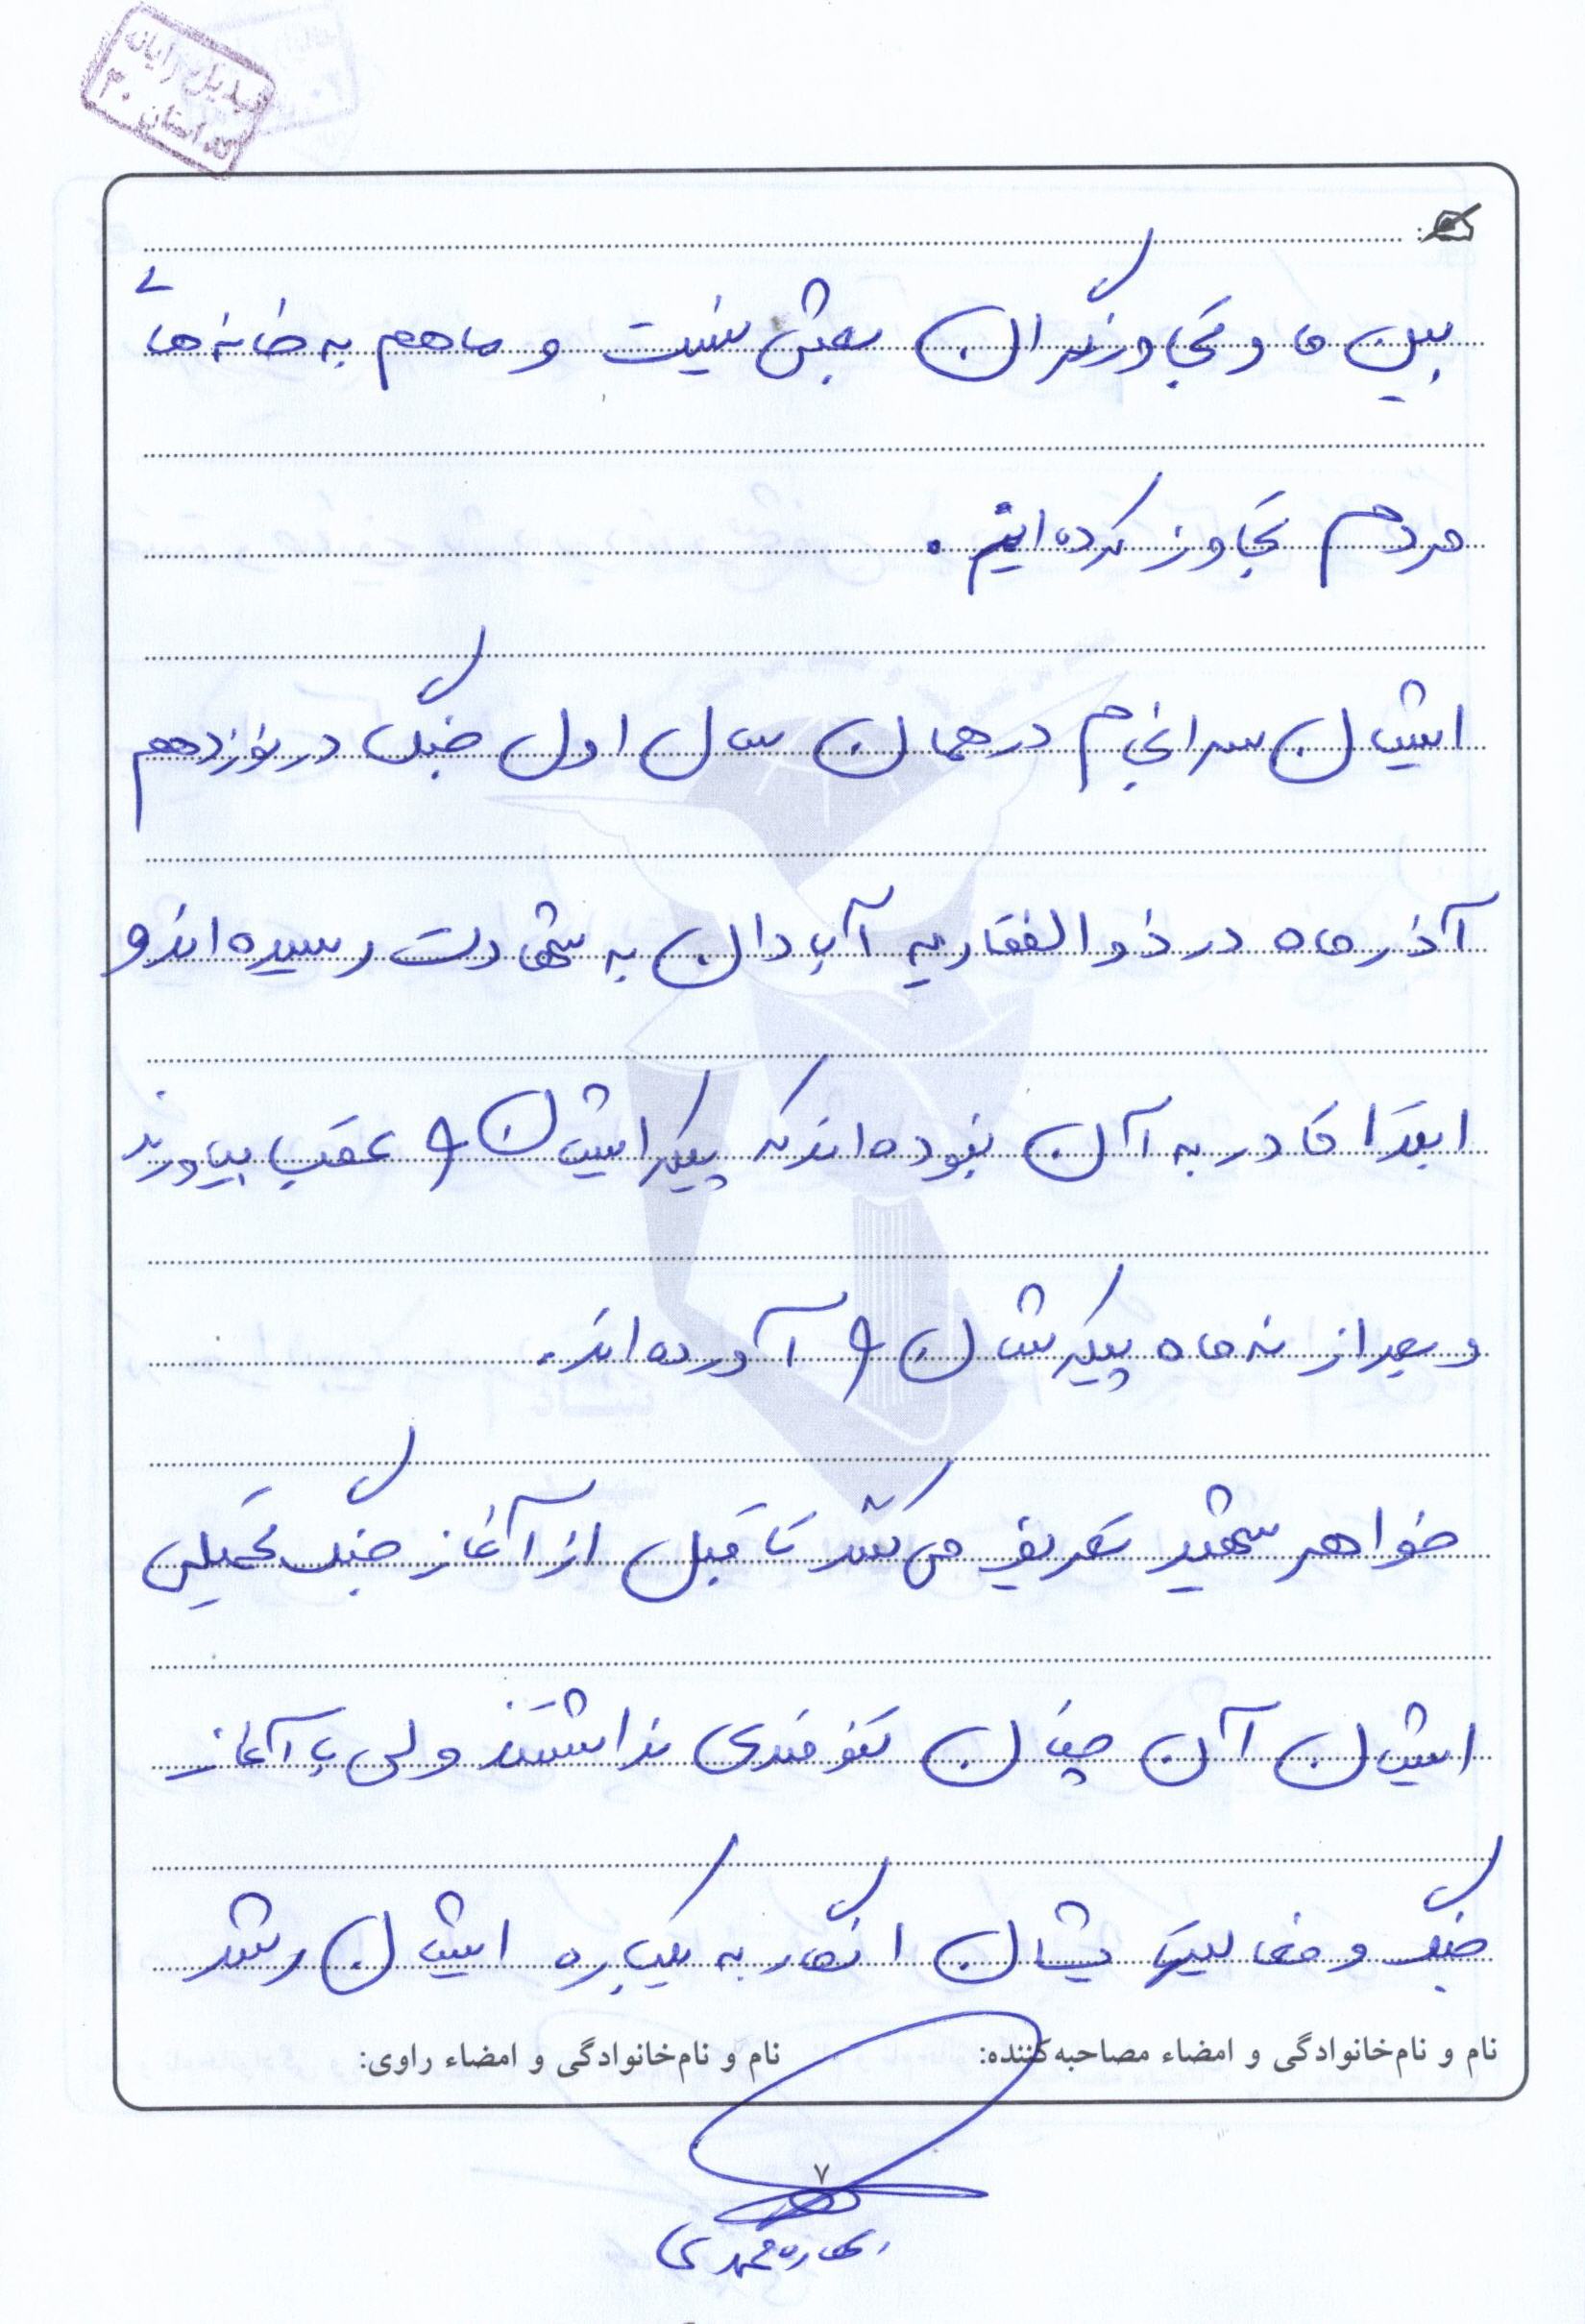 تبدیل رایانه
کد استان ۳۰
بین ما و تجاوزگران بعثی نیست و ما هم به خانه‌های
مردم تجاوز کرده‌ایم.
ایشان سرانجام در همان سال اول جنگ در نوزدهم
آذر ماه در ذوالفقاریه آبادان به شهادت رسیده‌اند و
ابتدا قادر به آن نبوده‌اند که پیکر ایشان را عقب بیاورند
و بعد از نه ماه پیکرشان را آورده‌اند.
خواهر شهید تعریف می‌کند تا قبل از آغاز جنگ تحمیلی
ایشان آن چنان تنومندی نداشتند ولی با آغاز
جنگ و فعالیت‌شان انگار به یکباره ایشان رشد
نام و نام‌خانوادگی و امضاء مصاحبه‌کننده:
نام و نام‌خانوادگی و امضاء راوی:
۷
محمدی